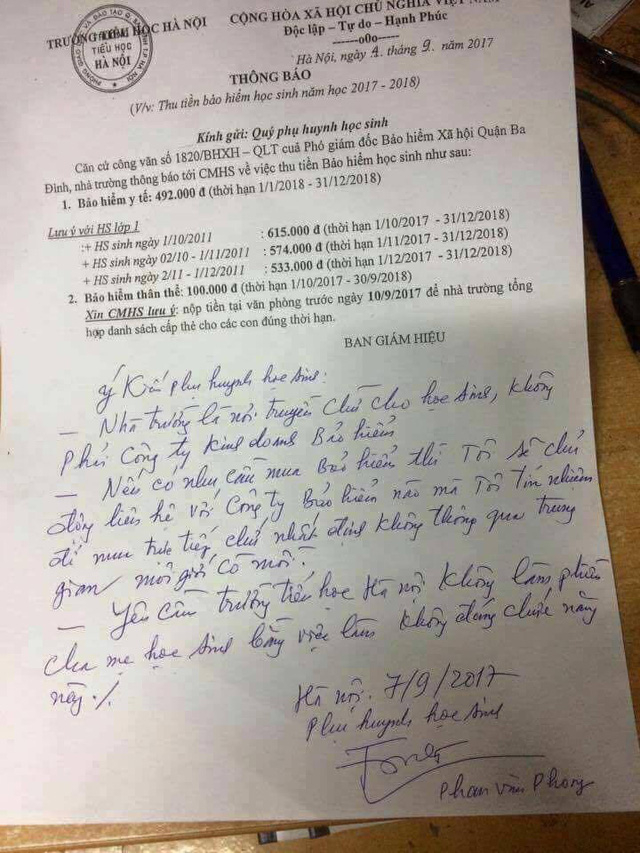 TRƯỜNG TIỂU HỌC HÀ NỘI
CỘNG HÒA XÃ HỘI CHỦ NGHĨA VIỆT NAM
Độc lập – Tự do – Hạnh Phúc
-------o0o-------
TIỂU HỌC
HÀ NỘI
Hà Nội, ngày 4 tháng 9 năm 2017
THÔNG BÁO
(V/v: Thu tiền bảo hiểm học sinh năm học 2017 - 2018)
Kính gửi: Quý phụ huynh học sinh
Căn cứ công văn số 1820/BHXH – QLT cuả Phó giám đốc Bảo hiểm Xã hội Quận Ba
Đình, nhà trường thông báo tới CMHS về việc thu tiền Bảo hiểm học sinh như sau:
1. Bảo hiểm y tế: 492.000 đ (thời hạn 1/1/2018 - 31/12/2018)
Lưu ý với HS lớp 1
:+ HS sinh ngày 1/10/2011 : 615.000 đ (thời hạn 1/10/2017 - 31/12/2018)
+ HS sinh ngày 02/10 - 1/11/2011 : 574.000 đ (thời hạn 1/11/2017 - 31/12/2018)
+ HS sinh ngày 2/11 - 1/12/2011 : 533.000 đ (thời hạn 1/12/2017 - 31/12/2018)
2. Bảo hiểm thân thể: 100.000 đ (thời hạn 1/10/2017 - 30/9/2018)
Xin CMHS lưu ý: nộp tiền tại văn phòng trước ngày 10/9/2017 để nhà trường tổng
hợp danh sách cấp thẻ cho các con đúng thời hạn.
BAN GIÁM HIỆU
ý Kiến phụ huynh học sinh:
– Nhà trường là nơi truyền chữ cho học sinh, không
phải Công ty kinh doanh Bảo hiểm
– Nếu có nhu cầu mua Bảo hiểm thì Tôi sẽ chủ
động liên hệ với Công ty Bảo hiểm nào mà Tôi tín nhiệm
để mua trực tiếp, chứ nhất định không thông qua trung
gian môi giới cò mồi.
– Yêu cầu trường tiểu học Hà nội không làm phiền
cha mẹ học sinh bằng việc làm không đúng chức năng
này ./.
Hà nội. 7/9/2017
Phụ huynh học sinh
Phan Văn Phong